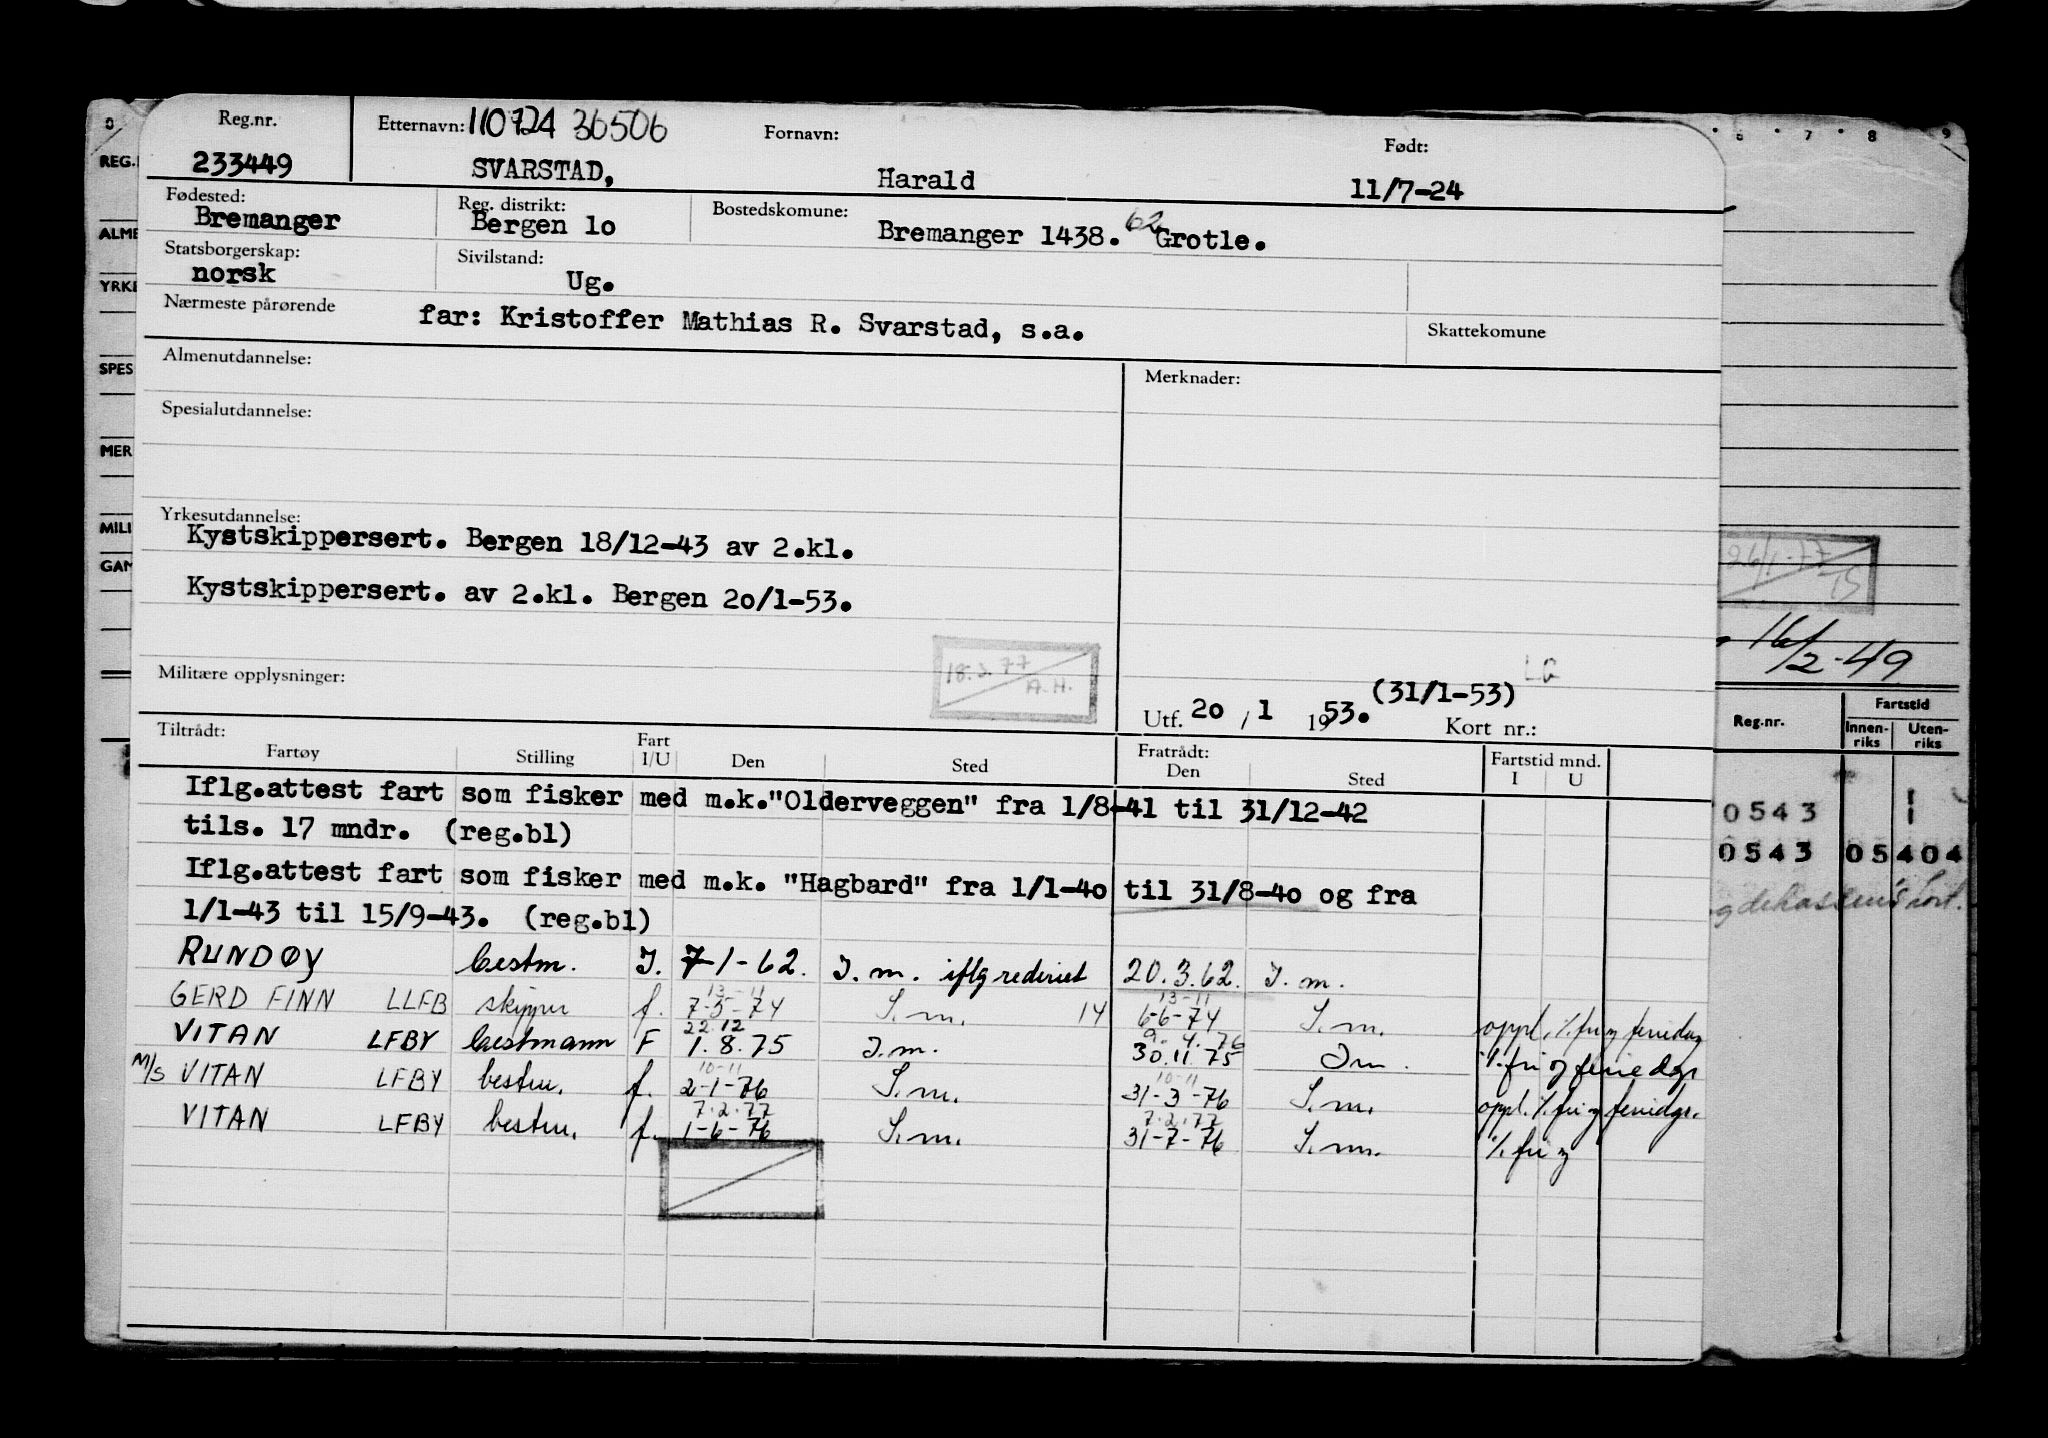 Reg.nr. Etternavn: 110724 36506 Fornavn: Født:
233449 SVARSTAD, Harald 11/7-24
Fødested: Reg. distrikt: Bostedskomune:
Bremanger Bergen lo Bremanger 1438. 62 Grotle.
Statsborgerskap: Sivilstand:
norsk Ug.
Nærmeste pårørende far: Kristoffer Mathias R. Svarstad, s.a. Skattekomune
Almenutdannelse: Merknader:
Spesialutdannelse:
Yrkesutdannelse:
Kystskippersert. Bergen 18/12-43 av 2.kl.
Kystskippersert. av 2.kl. Bergen 2o/1-53.
18.3.77 A.H.
Militære opplysninger:
LG
(31/1-53)
Utf. 2o / 1 1953. Kort nr.:
Tiltrådt: Fratrådt:
Fartøy Stilling Fart I/U Den Sted Den Sted Fartstid mnd. I U
Iflg.attest fart som fisker med m.k."Olderveggen" fra 1/8-41 til 31/12-42
tils. 17 mndr. (reg.bl)
Iflg.attest fart som fisker med m.k. "Hagbard" fra 1/1-4o til 31/8-4o og fra
1/1-43 til 15/9-43. (reg.bl)
RUNDØY bestm. I. 7-1-62. I.m. iflg rederiet 20.3.62. I.m.
13-11 13-11
GERD FINN LLFB skipper f. 7-5-74 S.m. 14 6-6-74 S.m. oppl. %. fri og feriedag
22.12 9. 4. 76
VITAN LFBY bestmann F 1.8.75 I.m. 30.11.75 Im. %. fri og feriedgr
10-11 10-11
M/S VITAN LFBY bestm. f. 2-1-76 S.m. 31-3-76 S.m. oppl. %. fri og feriedgr.
7.2.77 7.2.77
VITAN LFBY bestm. f. 1-6-76 S.m. 31-7-76 S.m. %. fri og
0
REG.
ALME
YRKE
SPES
MER
MILI
GAN
6 7 8 9
26/1-77
16/2-49
Reg.nr. Fartstid
Innen-riks Uten-riks
0543
0543 05404